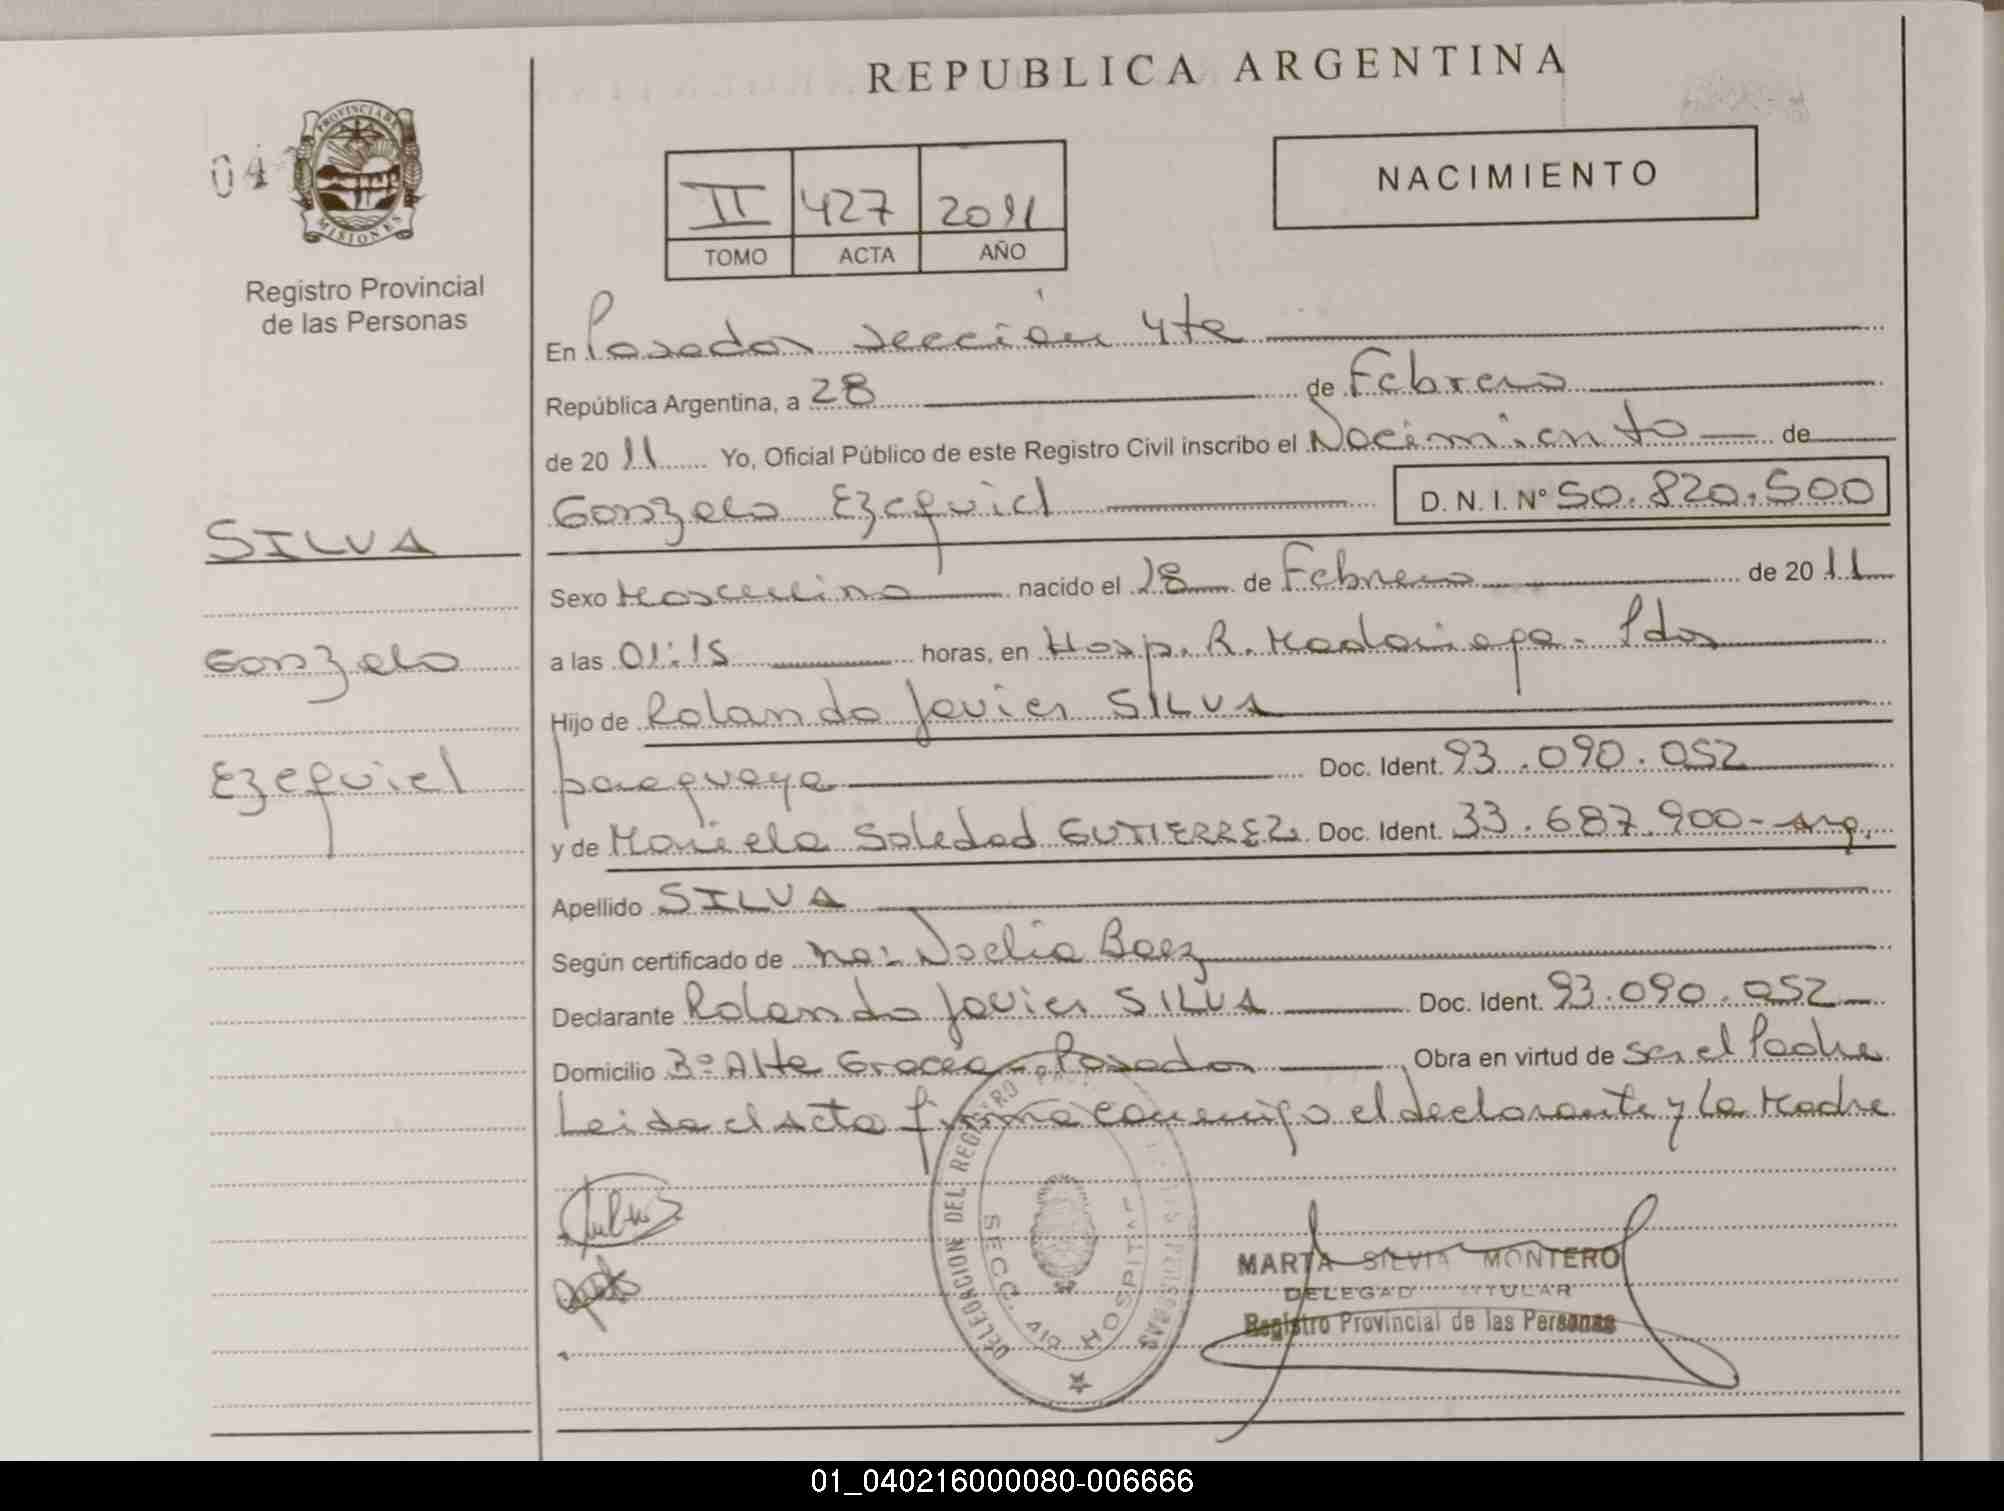 REPUBLICA ARGENTINA
PROVINCIA DE
MISIONES
04
Registro Provincial
de las Personas
NACIMIENTO
II 427 2011
TOMO ACTA AÑO
En Posadas sección 4ta
República Argentina, a 28 de Febrero
de 20 11 Yo, Oficial Público de este Registro Civil inscribo el Nacimiento de
Gonzalo Ezequiel D. N. I. Nº 50.820.500
SILVA
Gonzalo
Ezequiel
Sexo Masculino nacido el 28 de Febrero de 20 11
a las 01:15 horas, en Hosp. R. Madariaga - Pdas
Hijo de Rolando Javier SILVA
paraguaya Doc. Ident. 93.090.052
y de Mariela Soledad GUTIERREZ Doc. Ident. 33.687.900- arg.
Apellido SILVA
Según certificado de Noelia Baez
Declarante Rolando Javier SILVA Doc. Ident. 93.090.052
Domicilio Bº Alta Gracia - Posadas Obra en virtud de ser el Padre
Leida el Acta firma conmigo el declarante y la Madre
DELEGACION DEL REGISTRO
PERSONAS
SECC. HOSPITAL
MARTA SILVIA MONTERO
DELEGAD TITULAR
Registro Provincial de las Personas
01_040216000080-006666